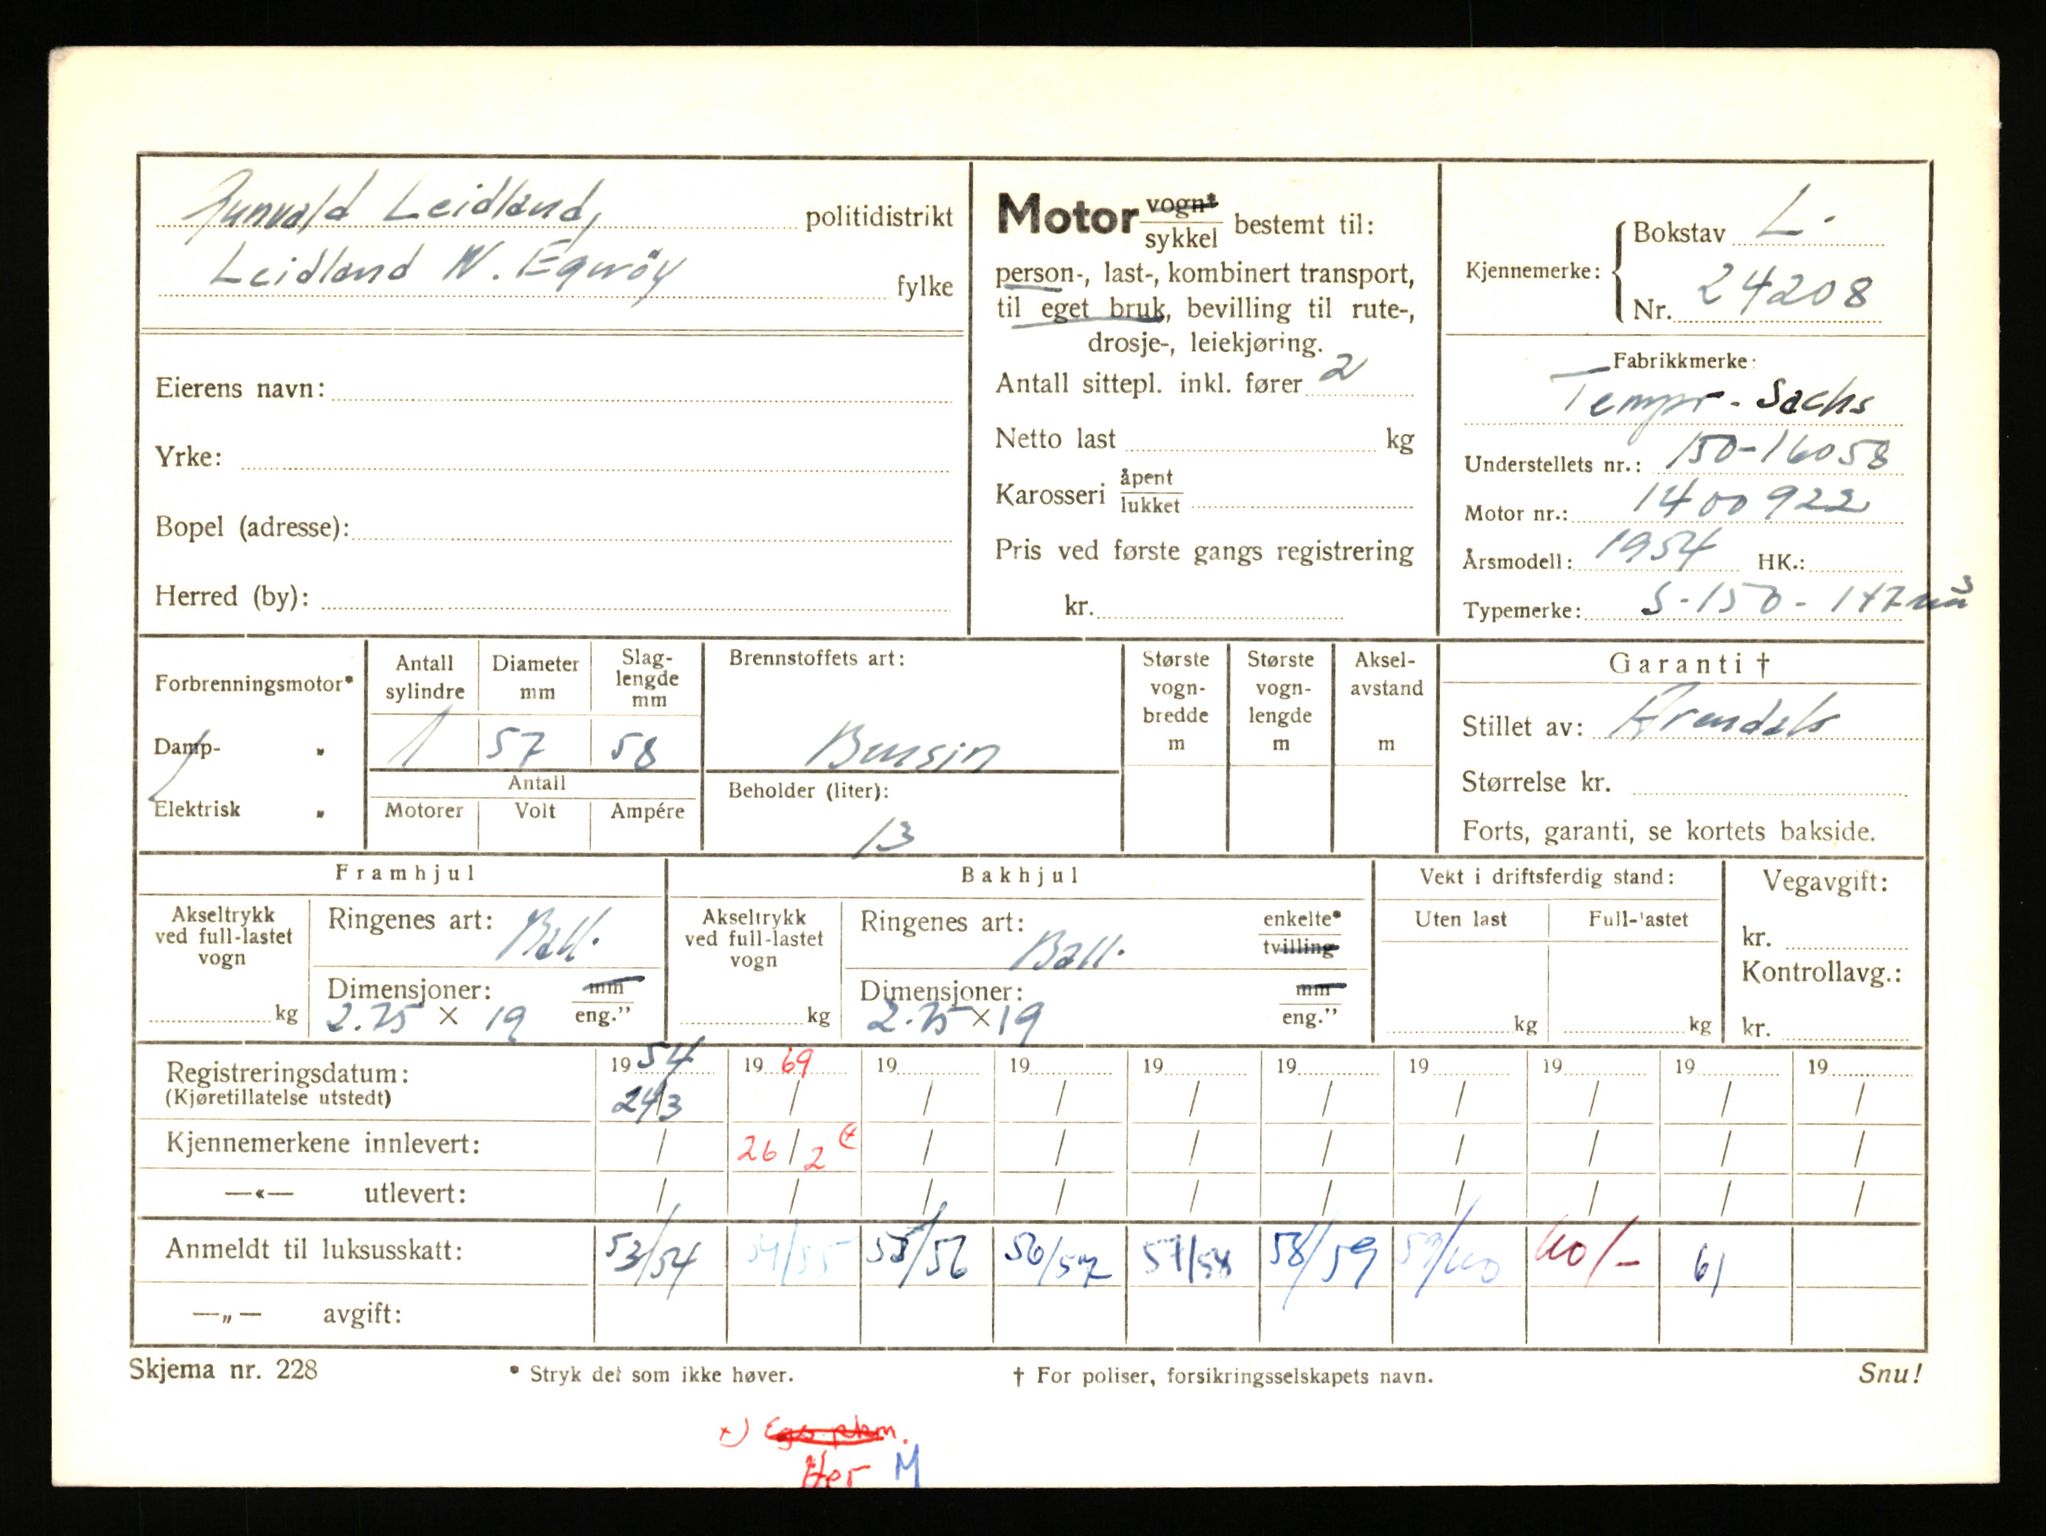 Gunvald Leidland, politidistrikt
Leidland N. Egerøy fylke
Eierens navn:
Yrke:
Bopel (adresse):
Herred (by):
Motor vogn* sykkel bestemt til:
person-, last-, kombinert transport,
til eget bruk, bevilling til rute-,
drosje-, leiekjøring.
Antall sittepl. inkl. fører 2
Netto last kg
Karosseri åpent lukket
Pris ved første gangs registrering
kr.
Kjennemerke: Bokstav L-
Nr. 24208
Fabrikkmerke:
Tempo - Sachs
Understellets nr.: 150-16058
Motor nr.: 1400922
Årsmodell: 1954 HK.:
Typemerke: S-150-147
Forbrenningsmotor*
Damp- "
Elektrisk "
Antall sylindre
Diameter mm
Slag-lengde mm
1 57 58
Antall
Motorer Volt Ampére
Brennstoffets art:
Bensin
Beholder (liter):
13
Største vogn-bredde m
Største vogn-lengde m
Aksel-avstand m
Garanti †
Stillet av: Arendals
Størrelse kr.
Forts, garanti, se kortets bakside.
Framhjul
Akseltrykk ved full-lastet vogn
kg
Ringenes art: Ball.
Dimensjoner: mm eng."
2.75 × 19
Bakhjul
Akseltrykk ved full-lastet vogn
kg
Ringenes art: Ball. enkelte* tvilling
Dimensjoner: mm eng."
2.75 × 19
Vekt i driftsferdig stand:
Uten last Full-lastet
kg kg
Vegavgift:
kr.
Kontrollavg.:
kr.
Registreringsdatum: 1954 1969 19 19 19 19 19 19 19 19
(Kjøretillatelse utstedt) 24/3 / / / / / / / / /
Kjennemerkene innlevert: / 26/2 / / / / / / / /
—«— utlevert: / / / / / / / / / /
Anmeldt til luksusskatt: 53/54 54/55 55/56 56/57 57/58 58/59 59/60 60/- 61
—„— avgift:
Skjema nr. 228 * Stryk det som ikke høver. † For poliser, forsikringsselskapets navn. Snu!
x)
M